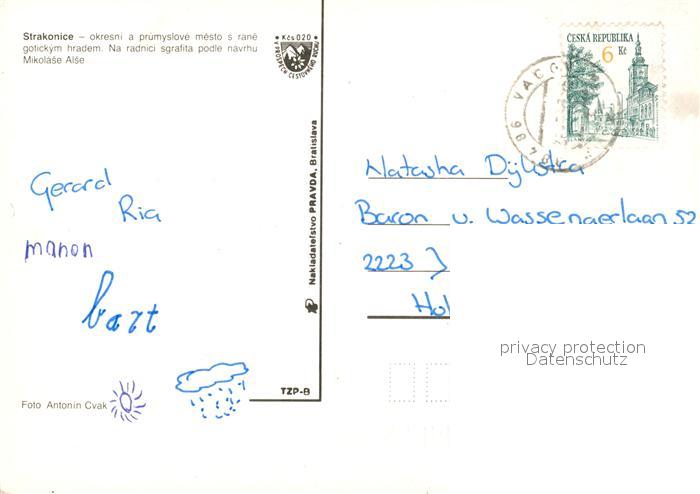 Strakonice – okresní a průmyslové město s raně
gotickým hradem. Na radnici sgrafita podle návrhu
Mikoláše Alše
Kčs 020
V PROSPĚCH CESTOVNÉHO RUCHU
ČESKÁ REPUBLIKA
6
Kč
Gerard
Ria
manon
bart
Foto Antonín Cvak
Nakladateľstvo PRAVDA, Bratislava
TZP-B
Natasha Dijkstra
Baron v. Wassenaerlaan 52
2223
Hol
privacy protection
Datenschutz